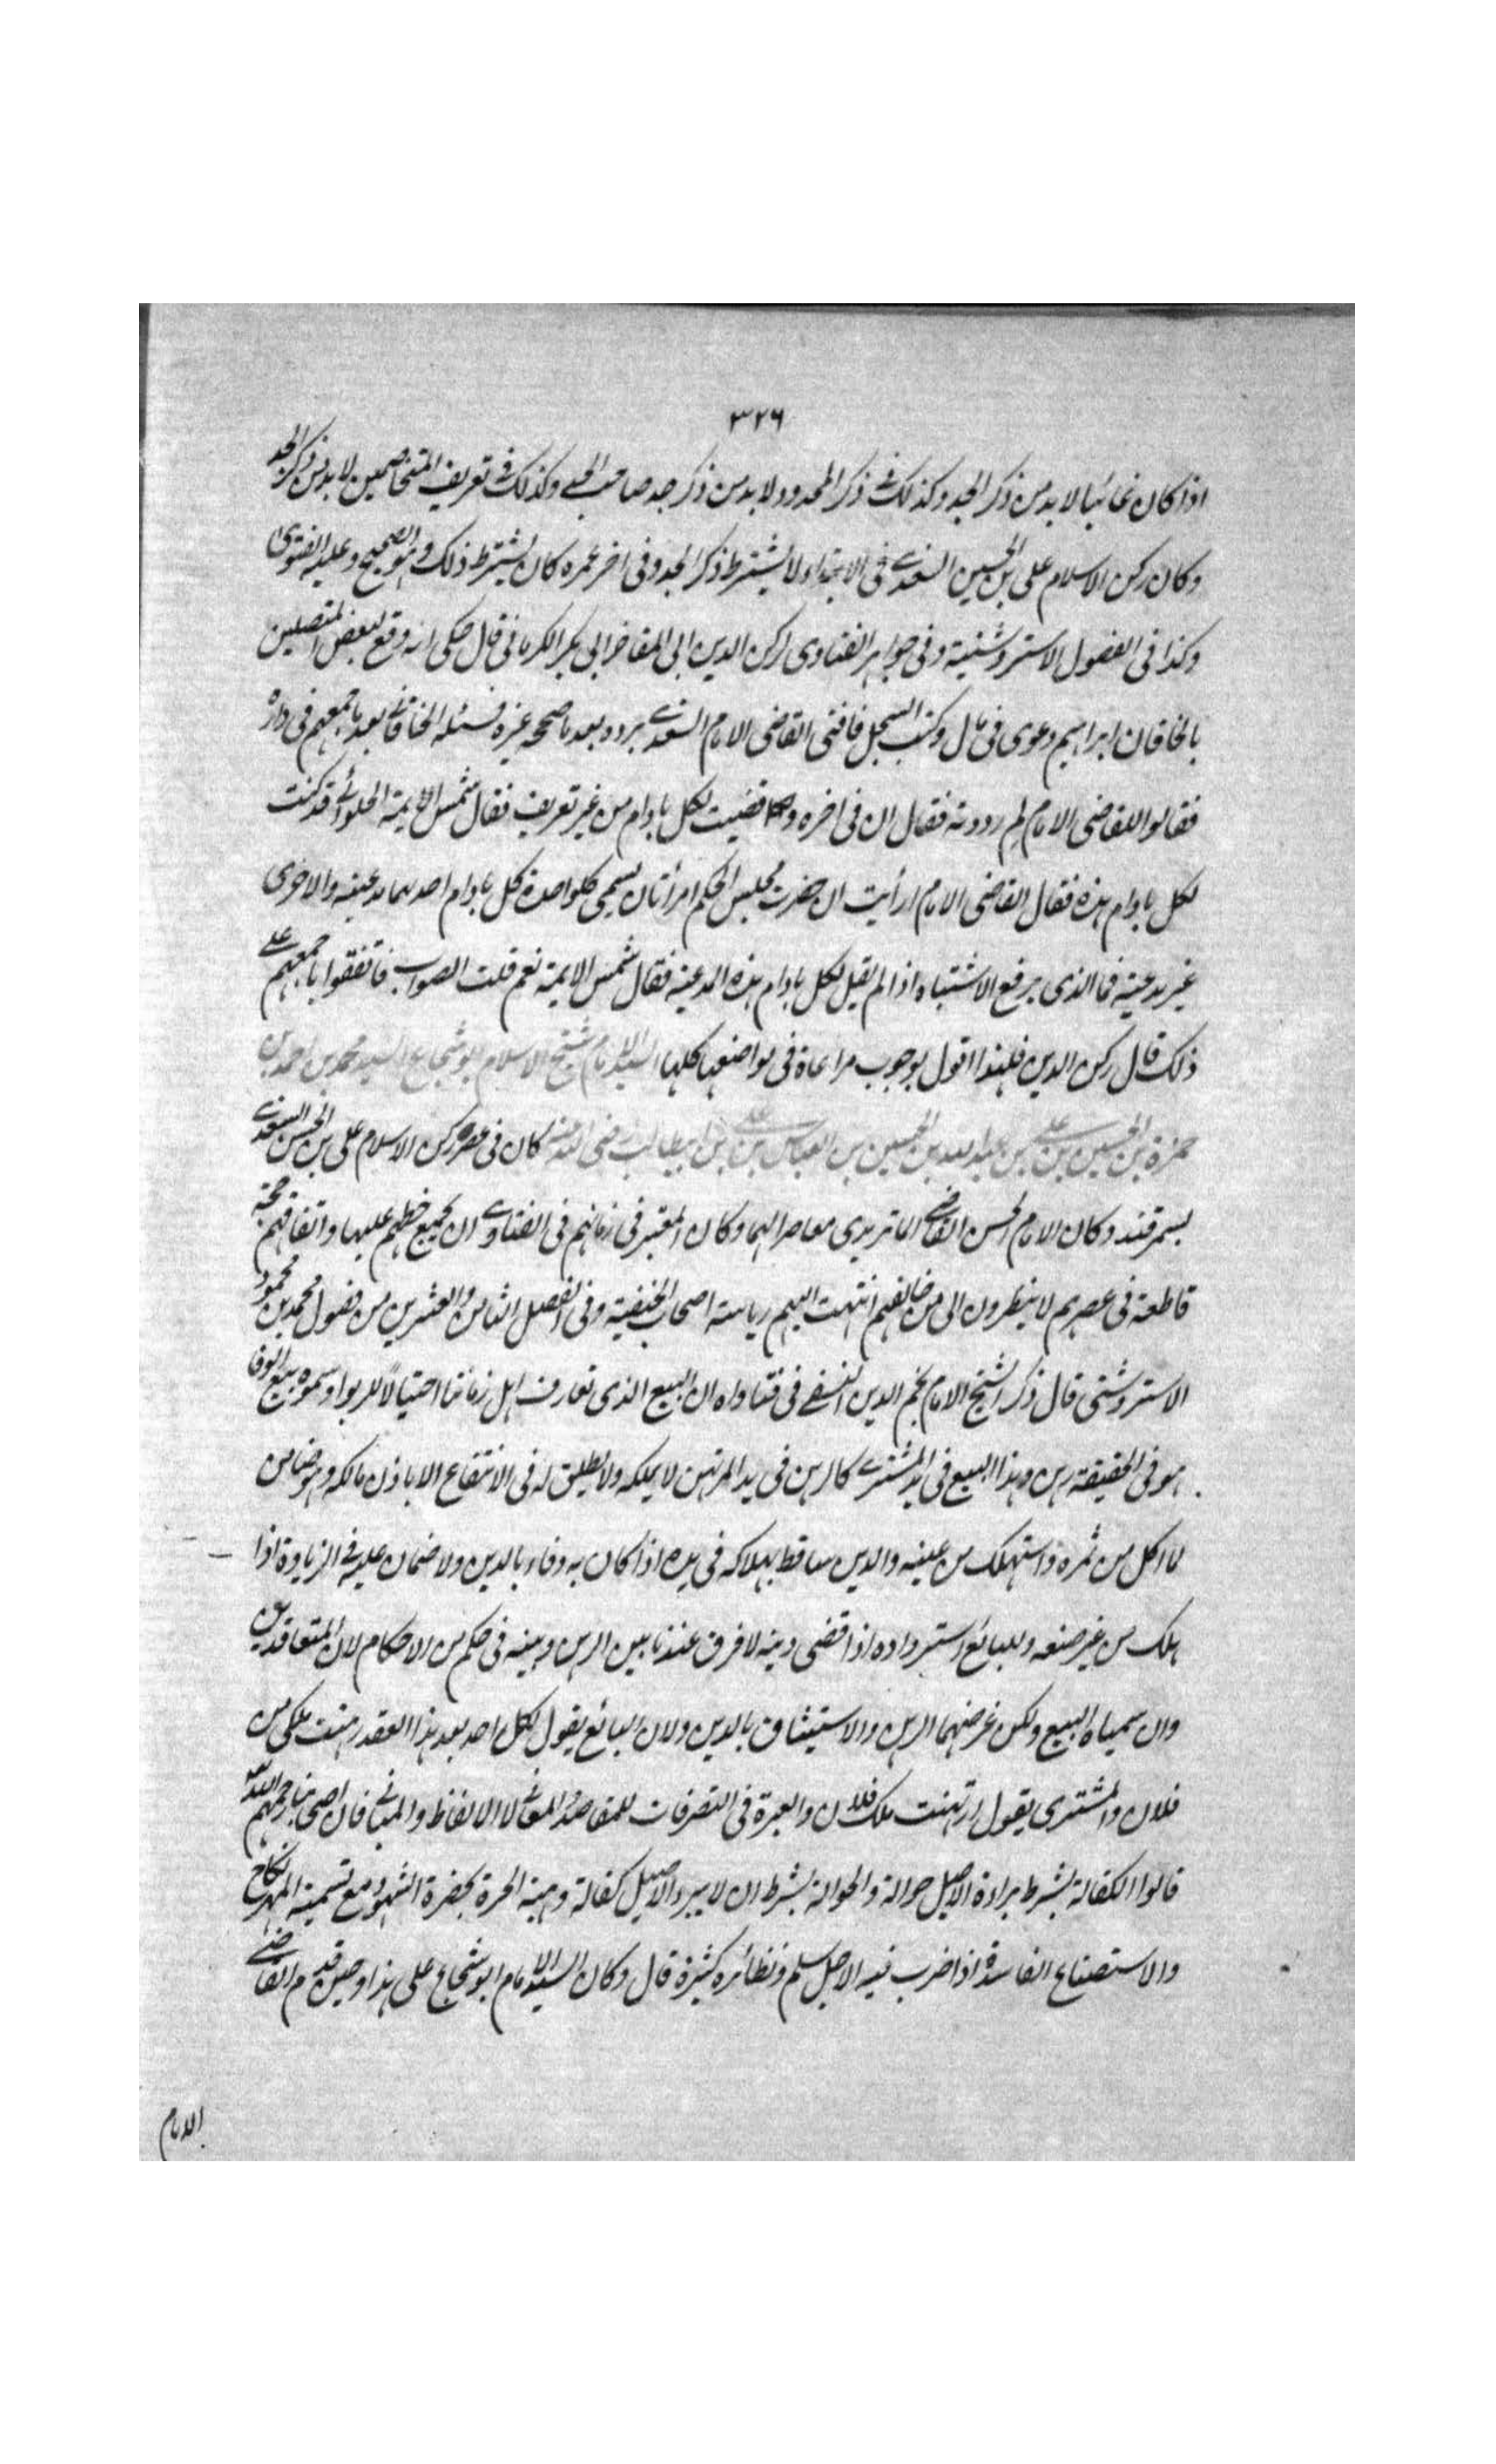 ٣٢٦
اذا كان غائبا لا بد من ذكر الجد وكذلك فى ذكر المحدود ولا بد من ذكر جد صاحب الحد وكذلك فى تعريف المتخاصمين لا بد من ذكر الجد
وكان ركن الاسلام على بن الحسين السغدى فى الابتداء لا يشترط ذكر الجد وفى اخر عمره كان يشترط ذلك وهو الصحيح وعليه الفتوى
وكذا فى الفصول الاستروشنية وفى جواهر الفتاوى لركن الدين ابى المفاخر ابى بكر الكرمانى قال حكى انه وقع لبعض المتصلين
بالخاقان ابراهيم دعوى فى مال وكتب السجل فافتى القاضى الامام السغدى برده بعد ما صححه غيره فسئله الخاقان بعد ما جمعهم فى داره
فقالوا للقاضى الامام لم رددته فقال ان فى اخره وقضيت لكل بادام من غير تعريف فقال شمس الايمة الحلوائى قد كنت
لكل بادام هذه فقال القاضى الامام ارأيت ان حضرت مجلس الحكم امرأتان يسمى كلواحدة كل بادام احدهما مدعية والاخرى
غير مدعية فما الذى يرفع الاشتباه اذا لم يقل لكل بادام هذه المدعية فقال شمس الايمة نعم قلت الصواب فاتفقوا باجمعهم على
ذلك قال ركن الدين فلهذا اقول بوجوب مراعاة فى مواضعها كلها السيد الامام شيخ الاسلام ابو شجاع السيد محمد بن احمد بن
حمزة بن الحسين بن على بن عبد الله بن الحسين بن العباس بن على بن ابيطالب رضى الله عنه كان فى عصر ركن الاسلام على بن الحسن السغدى
بسمرقند وكان الامام الحسن القاضى الماتريدى معاصرا لهما وكان المعتبر فى زمانهم فى الفتاوى ان يجمع خطهم عليها واتفاقهم حجة
قاطعة فى عصرهم لا ينظرون الى من خالفهم انتهت اليهم رياسة اصحاب الحنفية وفى الفصل الثامن والعشرين من فصول محمد بن محمود
الاستروشنى قال ذكر الشيخ الامام نجم الدين النسفى فى فتاواه ان البيع الذى تعارف اهل زماننا احتيالا للربوا وسموه بيع الوفا
هو فى الحقيقة رهن وهذا البيع فى يد المشترى كالرهن فى يد المرتهن لا يملكه ولا يطلق له فى الانتفاع الا باذن مالكه وهو ضامن
لما اكل من ثمره واستهلك من عينه والدين ساقط بهلاكه فى يده اذا كان به وفاء بالدين ولا ضمان عليه فى الزيادة اذا
هلك من غير صنعه وللبائع استرداده اذا قضى دينه لا فرق عندنا بين الرهن وبينه فى حكم من الاحكام لان المتعاقدين
وان سمياه البيع ولكن غرضهما الرهن والاستيثاق بالدين ولان البائع يقول لكل احد بعد هذا العقد رهنت ملكى من
فلان والمشترى يقول ارتهنت ملك فلان والعبرة فى التصرفات للمقاصد والمعانى لا الالفاظ والمبانى فان اصحابنا رحمهم الله
قالوا الكفالة بشرط براءة الاصيل حوالة والحوالة بشرط ان لا يبرء الاصيل كفالة وهبة الحرة بحضرة الشهود مع تسمية المهر نكاح
والاستصناع الفاسد اذا ضرب فيه الاجل سلم ونظائره كثيرة قال وكان السيد الامام ابو شجاع على هذا وحين قدم القاضى
الامام